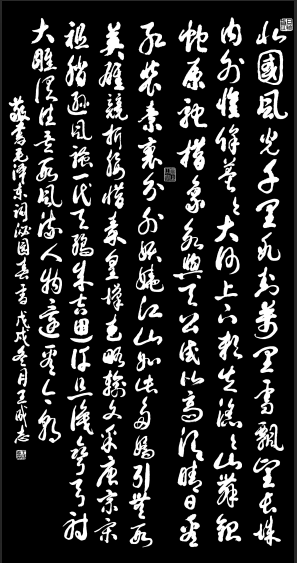 北國風光千里冰封萬里雪飄望長城
內外惟餘莽莽大河上下頓失滔滔山舞銀
蛇原馳蠟象欲與天公試比高須晴日看
紅裝素裹分外妖嬈江山如此多嬌引無數
英雄競折腰惜秦皇漢武略輸文采唐宗宋
祖稍遜風騷一代天驕成吉思汗只識彎弓射
大雕俱往矣數風流人物還看今朝
敬書毛澤東詞沁園春雪戊戌